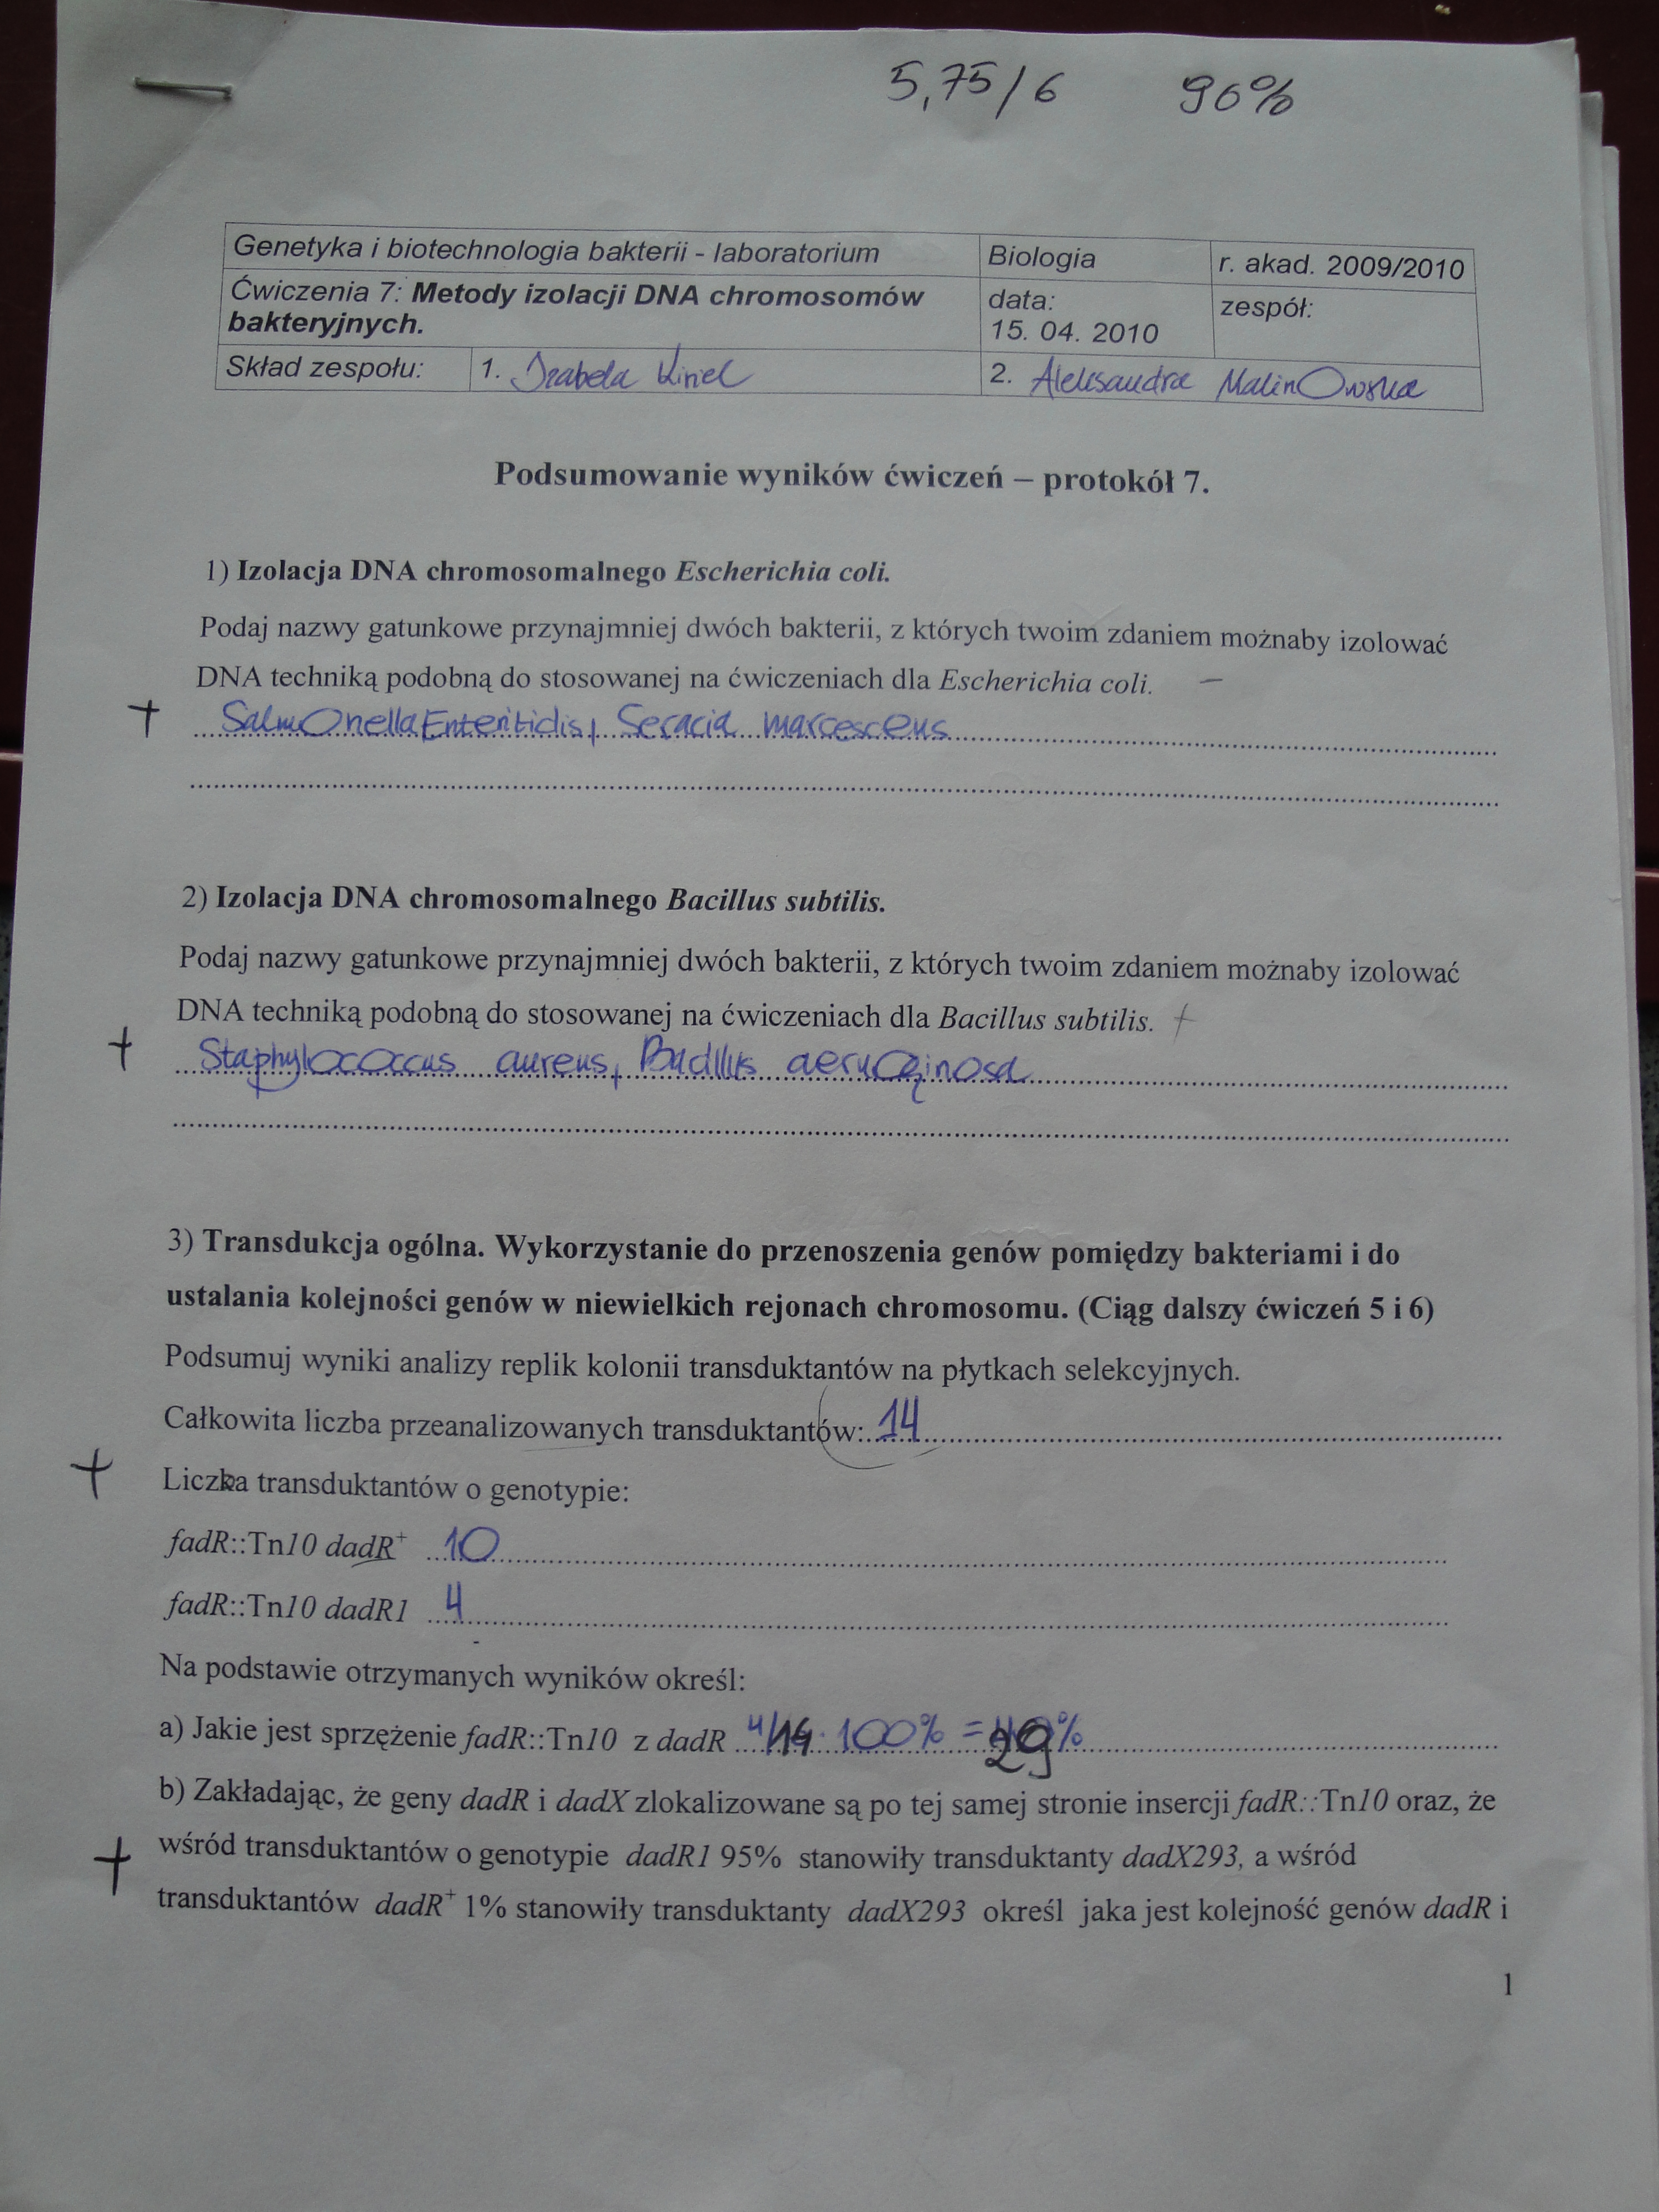 5,75/6 96%
Genetyka i biotechnologia bakterii - laboratorium Biologia r. akad. 2009/2010
Ćwiczenia 7: Metody izolacji DNA chromosomów bakteryjnych. data: 15. 04. 2010 zespół:
Skład zespołu: 1. Izabela Kiniel 2. Aleksandra MalinOwska
Podsumowanie wyników ćwiczeń – protokół 7.
1) Izolacja DNA chromosomalnego Escherichia coli.
Podaj nazwy gatunkowe przynajmniej dwóch bakterii, z których twoim zdaniem możnaby izolować
DNA techniką podobną do stosowanej na ćwiczeniach dla Escherichia coli. –
+ Salmonella Enteritidis, Seracia marcescens
2) Izolacja DNA chromosomalnego Bacillus subtilis.
Podaj nazwy gatunkowe przynajmniej dwóch bakterii, z których twoim zdaniem możnaby izolować
DNA techniką podobną do stosowanej na ćwiczeniach dla Bacillus subtilis. +
+ Staphylococcus aureus, Bacillus aeruginosa
3) Transdukcja ogólna. Wykorzystanie do przenoszenia genów pomiędzy bakteriami i do
ustalania kolejności genów w niewielkich rejonach chromosomu. (Ciąg dalszy ćwiczeń 5 i 6)
Podsumuj wyniki analizy replik kolonii transduktantów na płytkach selekcyjnych.
Całkowita liczba przeanalizowanych transduktantów: 14
+ Liczba transduktantów o genotypie:
fadR::Tn10 dadR+ 10
fadR::Tn10 dadR1 4
Na podstawie otrzymanych wyników określ:
a) Jakie jest sprzężenie fadR::Tn10 z dadR 4/14 · 100% = 29%
b) Zakładając, że geny dadR i dadX zlokalizowane są po tej samej stronie insercji fadR::Tn10 oraz, że
+ wśród transduktantów o genotypie dadR1 95% stanowiły transduktanty dadX293, a wśród
transduktantów dadR+ 1% stanowiły transduktanty dadX293 określ jaka jest kolejność genów dadR i
1